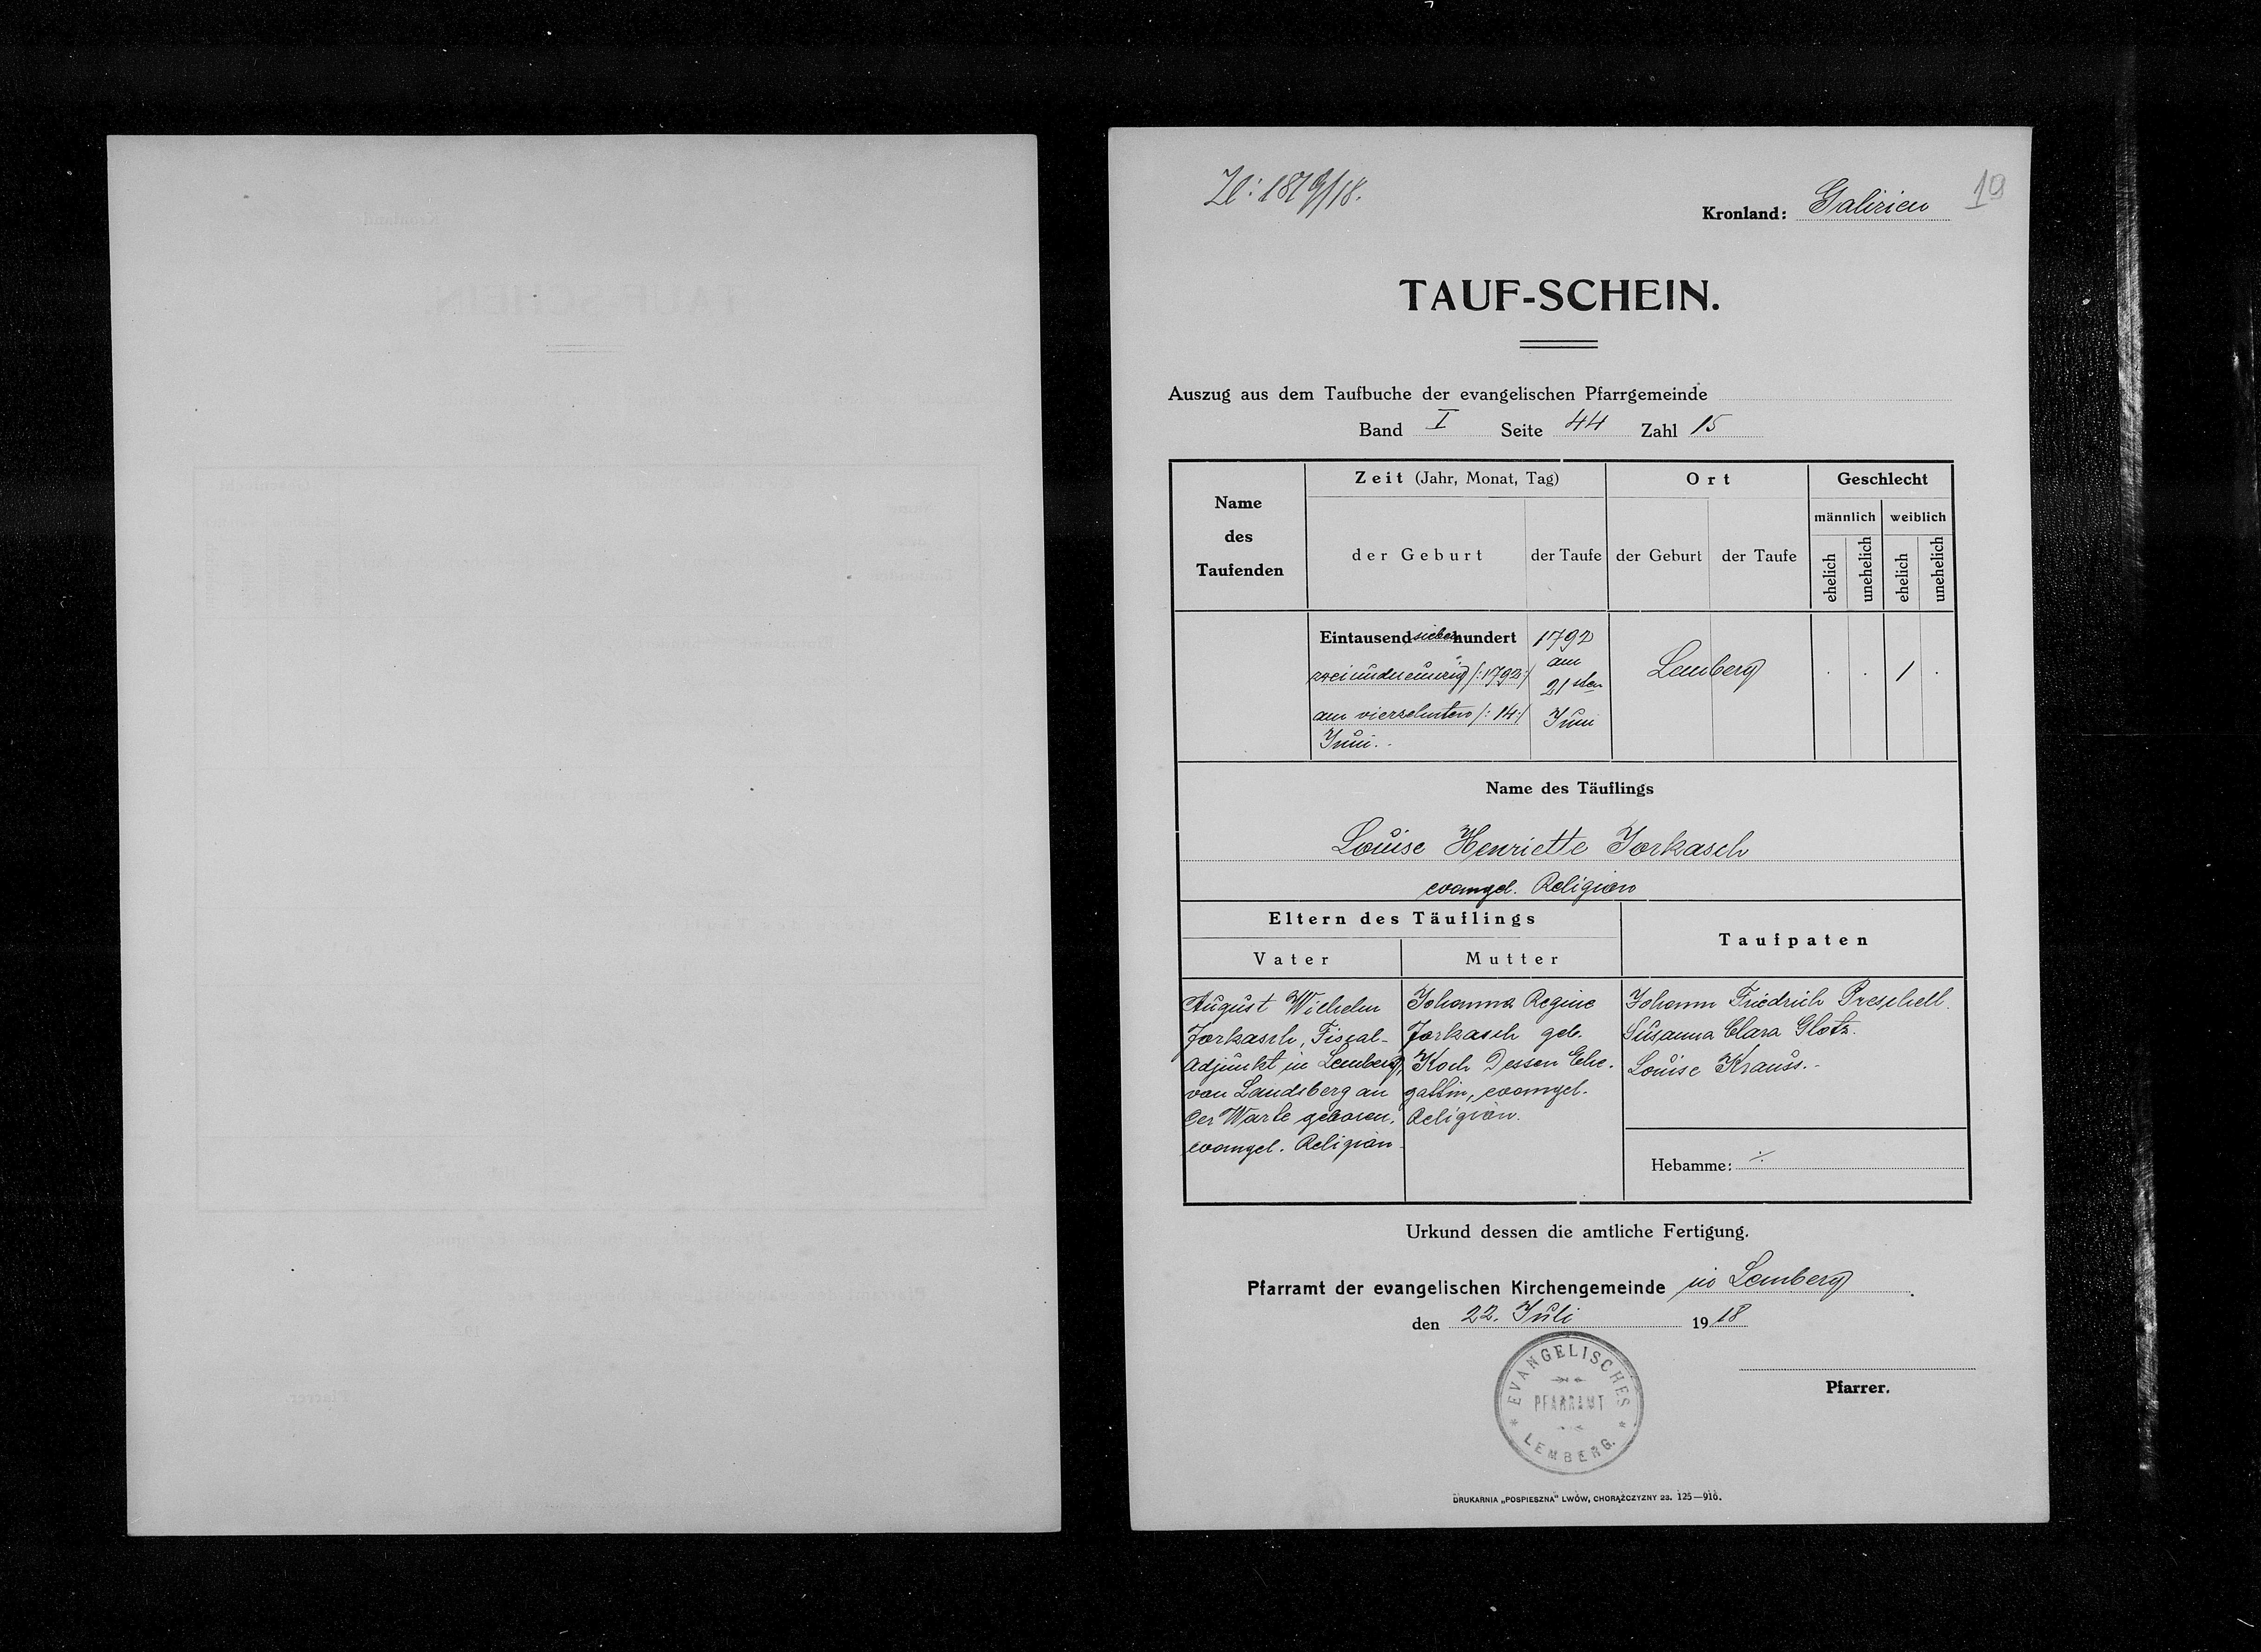 Zl: 1879/18.
Kronland: Galizien
19
TAUF-SCHEIN.
Auszug aus dem Taufbuche der evangelischen Pfarrgemeinde
Band I Seite 44 Zahl 15
Name des Taufenden
Zeit (Jahr, Monat, Tag)
der Geburt
der Taufe
Ort
der Geburt
der Taufe
Geschlecht
männlich
weiblich
ehelich
unehelich
ehelich
unehelich
Eintausendsiebenhundert
zweiundneunzig /:1792:/
am vierzehnten /:14:/
Juni.
1792
am
21sten
Juni
Lemberg
1
Name des Täuflings
Louise Henriette Jorkasch
evangel. Religion
Eltern des Täuflings
Vater
Mutter
Taufpaten
August Wilhelm
Jorkasch, Fiscal-
Adjunkt in Lemberg,
von Landsberg an
der Warte geboren,
evangel. Religion
Johanna Regine
Jorkasch geb.
Koch Dessen Ehe-
gattin, evangel.
Religion.
Johann Friedrich Preschell.
Susanna Clara Glotz.
Louise Krauss.
Hebamme: ./.
Urkund dessen die amtliche Fertigung.
Pfarramt der evangelischen Kirchengemeinde in Lemberg.
den 22. Juli 1918
EVANGELISCHES
PFARRAMT
LEMBERG.
Pfarrer.
DRUKARNIA „POSPIESZNA" LWÓW, CHORĄŻCZYZNY 23. 125—916.